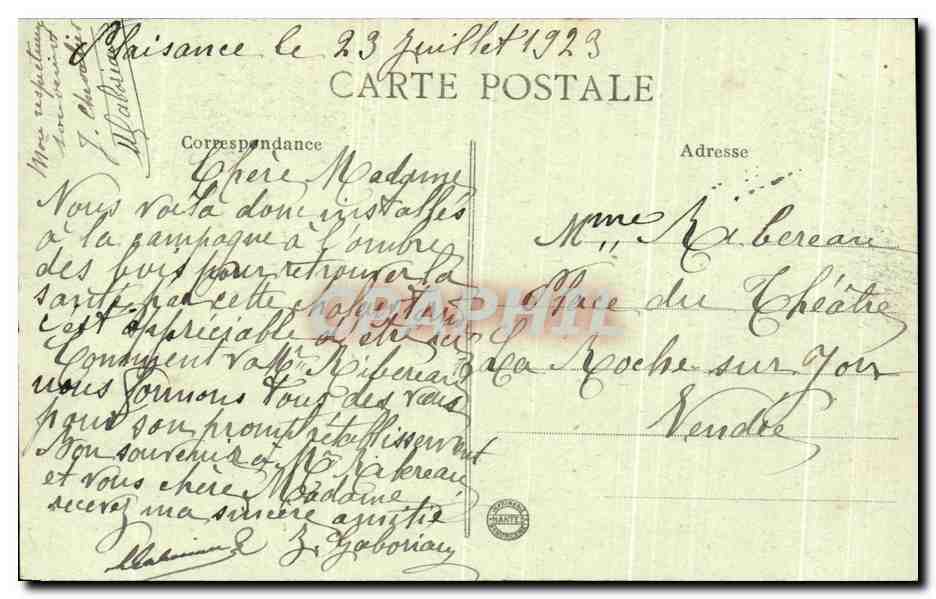 Plaisance le 23 Juillet 1923
CARTE POSTALE
Mon respectueux
souvenir
J. Chevalier
Correspondance
Chère Madame
Nous voilà donc installés
à la campagne à l'ombre
des bois pour retrouver la
santé par cette chaleur
c'est appréciable d'être ici
Comment va Mr Ribereau?
nous formons tous des vœux
pour son prompt rétablissement
Mon souvenir à Mr Ribereau
et vous chère Madame
recevez ma sincère amitié
Z. Gaboriau
Adresse
Mme Ribereau
Place du Théâtre
La Roche sur Yon
Vendée
NANTES
GRAPHIL